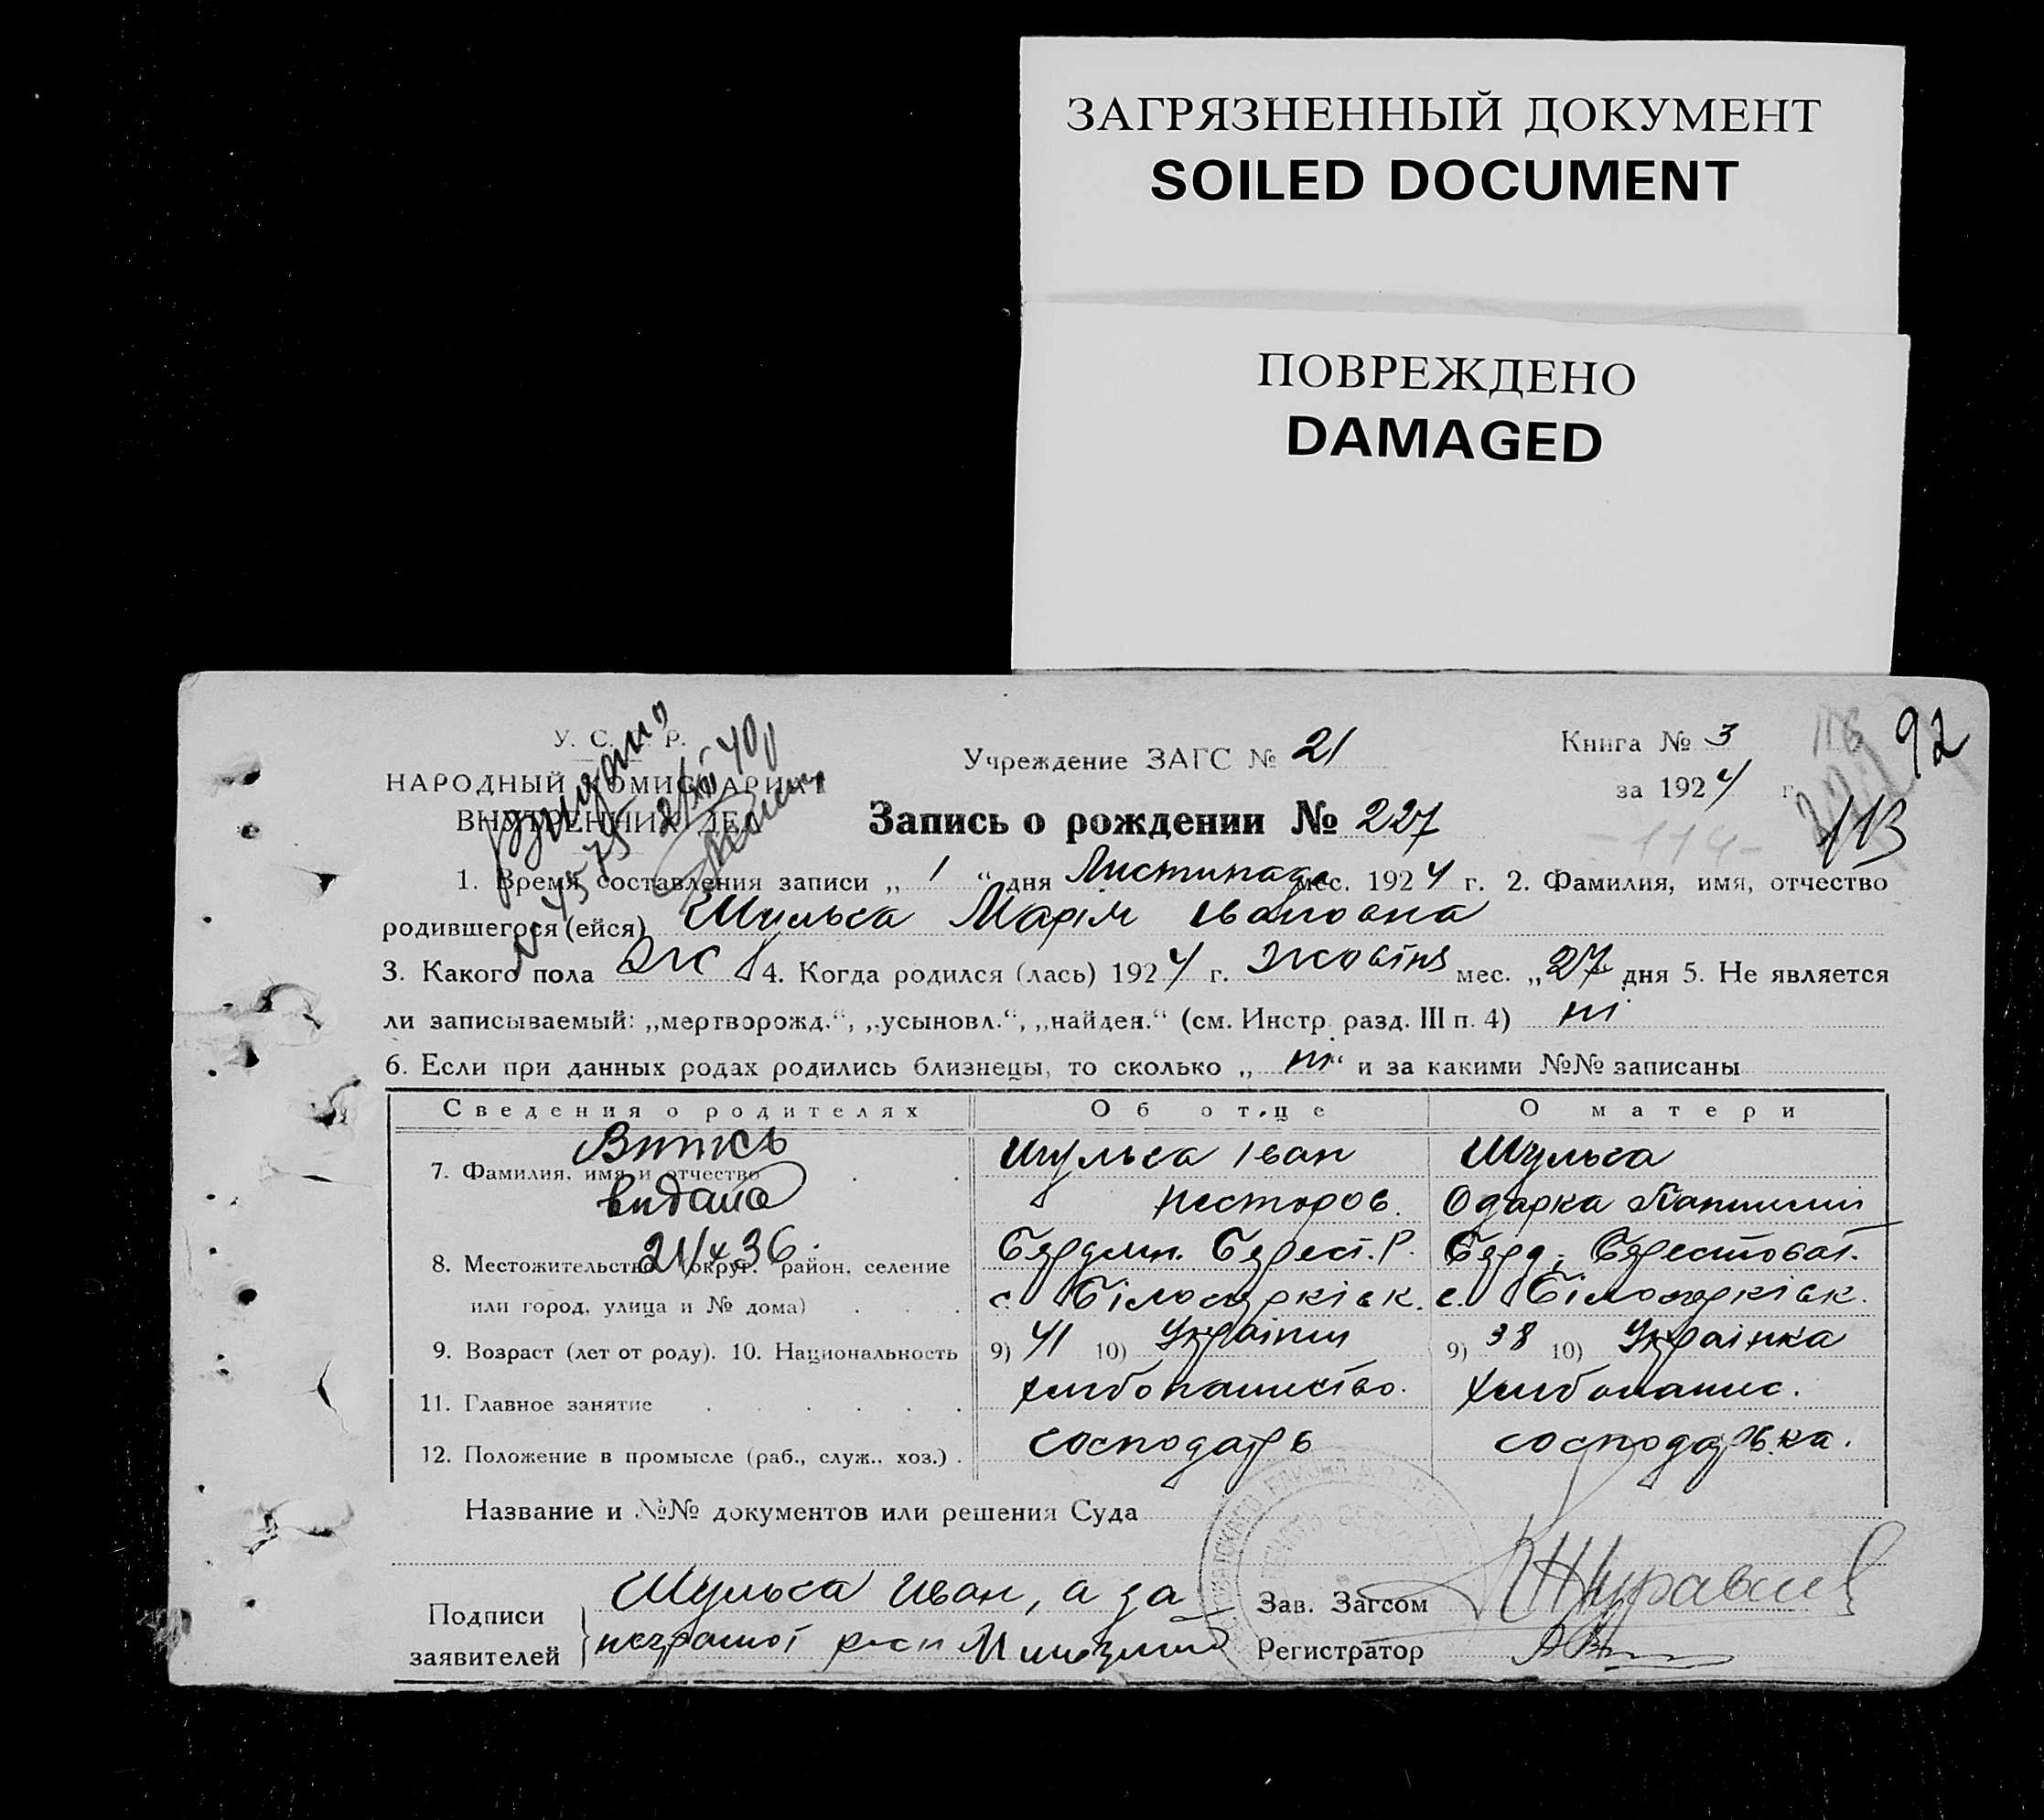 ЗАГРЯЗНЕННЫЙ ДОКУМЕНТ
SOILED DOCUMENT
ПОВРЕЖДЕНО
DAMAGED
У. С. Р.
НАРОДНЫЙ КОМИССАРИАТ
ВНУТРЕННИХ ДЕЛ
Учреждение ЗАГС № 21
Книга № 3
за 1924 г.
92
113
-114-
Запись о рождении № 227
1. Время составления записи „ 1 “ дня Листипада мес. 1924 г. 2. Фамилия, имя, отчество
родившегося (ейся) Шульга Марія Івановна
3. Какого пола Ж 4. Когда родился (лась) 1924 г. Жовтня мес. „27 дня 5. Не является
ли записываемый: „мертворожд.“, „усыновл.“, „найден.“ (см. Инстр. разд. III п. 4) ні
6. Если при данных родах родились близнецы, то сколько „ ні “ и за какими №№ записаны
Сведения о родителях Об отце О матери
Випись
видано
21/X 36.
7. Фамилия, имя и отчество Шульга Іван Шульга
Несторов. Одарка
8. Местожительство (округ, район, селение Бердян. Берест. Р. Берд. Берестоват.
или город, улица и № дома) с. Білоцерківк. с. Білоцерківк.
9. Возраст (лет от роду). 10. Национальность 9) 41 10) Українц 9) 38 10) Українка
11. Главное занятие хлибопашество. хлибопашес.
12. Положение в промысле (раб., служ., хоз.) господарь господарька.
Название и №№ документов или решения Суда
Подписи
заявителей
Шульга Иван, а за
неграмот росп
Зав. Загсом
Регистратор